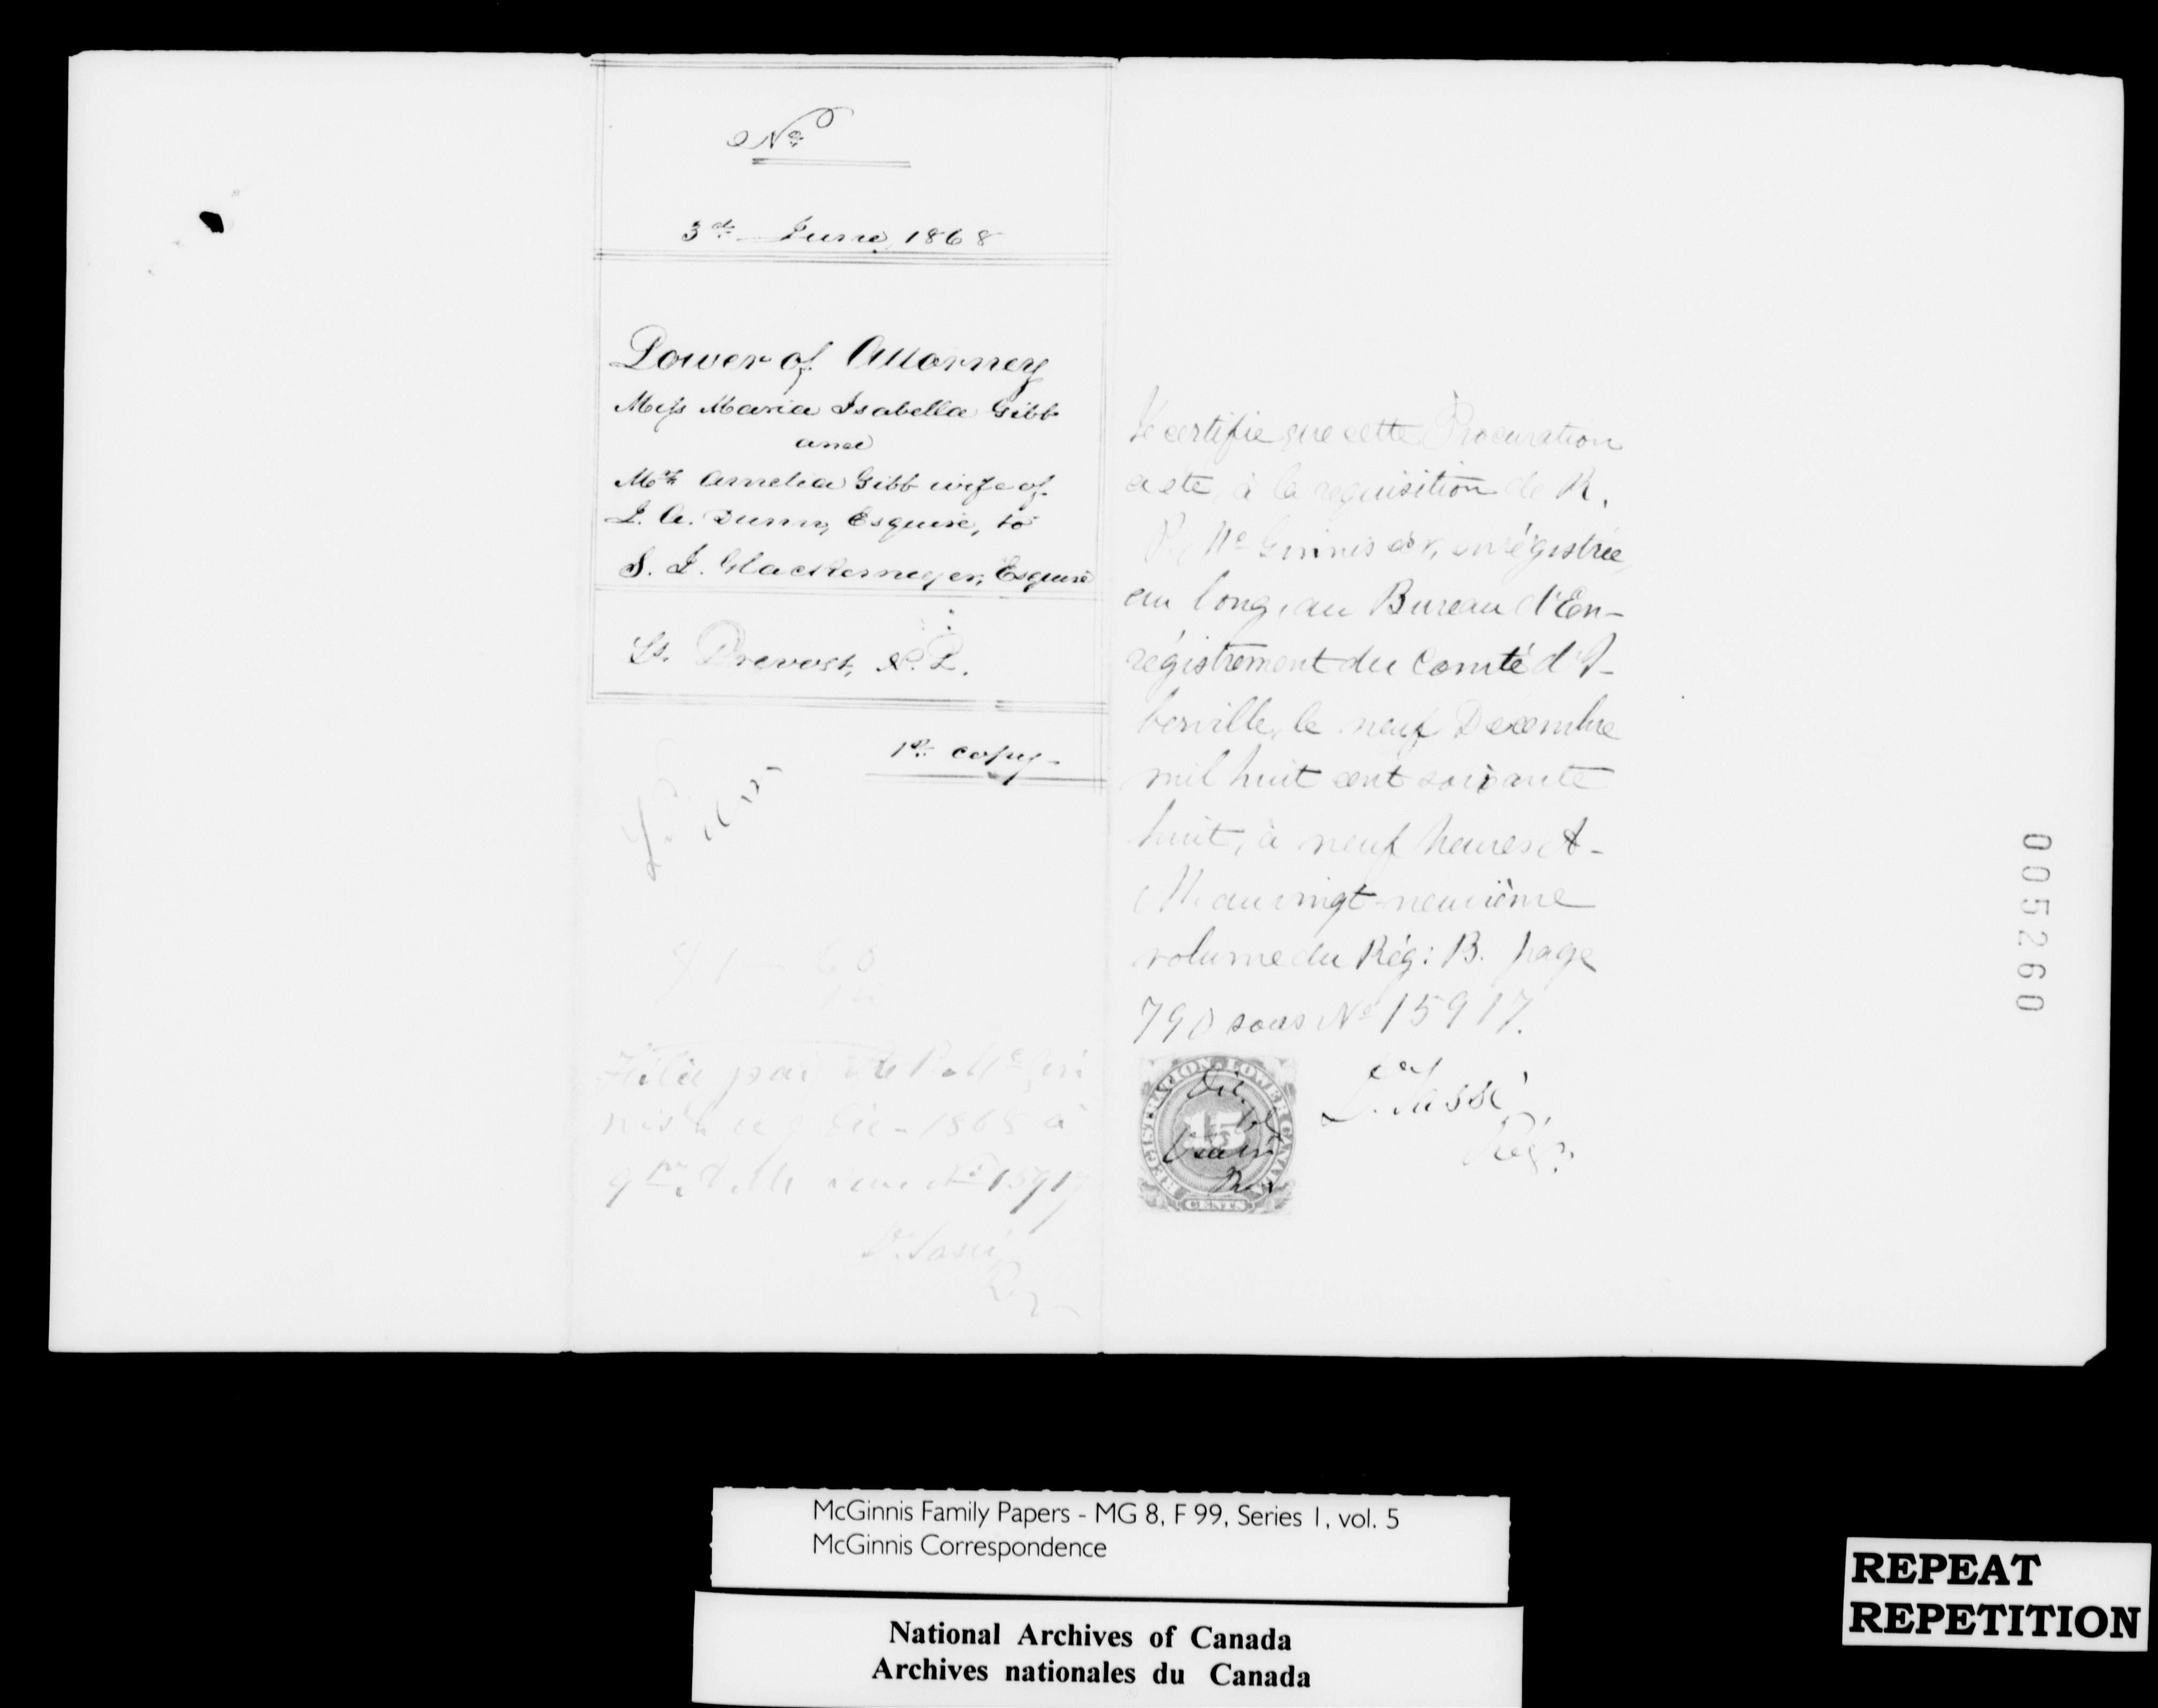 No
3d June, 1868
Power of Attorney
Miss Maria Isabella Gibb
and
Mrs Amelia Gibb wife of
J. A. Dunn, Esquire, to
S. J. Glackemeyer, Esquire
Ls. Prevost, N.P.
1st copy
Filée par
nis ce 9 Déc 1868 à
9 A.M. sous No 15917
Ls. Tassé
Reg
Je certifie que cette Procuration
a été, à la requisition de R.
P. McGinnis enrégistrée
au long, au Bureau d'En-
régistrement du Comté d'I-
berville, le neuf Décembre
mil huit cent soixante
huit, à neuf heures A-
M. au vingt-neuvième
volume du Rég: B. page
790 sous No 15917.
Ls. Tassé
Régr.
REGISTRATION LOWER CANADA
15
CENTS
005260
McGinnis Family Papers - MG 8, F 99, Series 1, vol. 5
McGinnis Correspondence
National Archives of Canada
Archives nationales du Canada
REPEAT
REPETITION